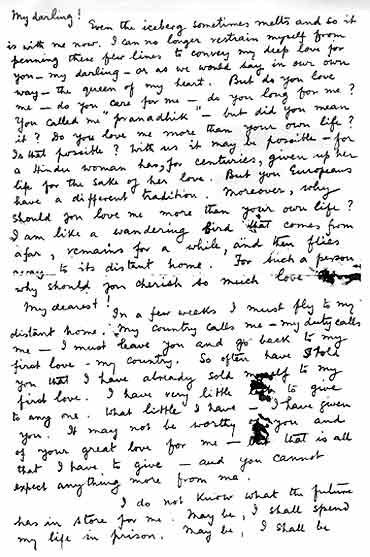 My darling!
Even the iceberg sometimes melts and so it
is with me now. I can no longer restrain myself from
penning these few lines to convey my deep love for
you - my darling - or as we would say in our own
way - the queen of my heart. But do you love
me - do you care for me - do you long for me?
You called me "pranadhik" - but did you mean
it? Do you love me more than your own life?
Is that possible? With us it may be possible - for
a Hindu woman has, for centuries, given up her
life for the sake of her love. But you Europeans
have a different tradition. Moreover, why
should you love me more than your own life?
I am like a wandering bird that comes from
afar, remains for a while, and then flies
away to its distant home. For such a person
why should you cherish so much love
My dearest!
In a few weeks I must fly to my
distant home. My country calls me - my duty calls
me - I must leave you and go back to my
first love - my country. So often have I told
you that I have already sold myself to my
first love. I have very little to give
to any one. What little I have - I have given
you. It may not be worthy of you and
of your great love for me - but that is all
that I have to give - and you cannot
expect anything more from me.
I do not know what the future
has in store for me. May be, I shall spend
my life in prison. May be, I shall be